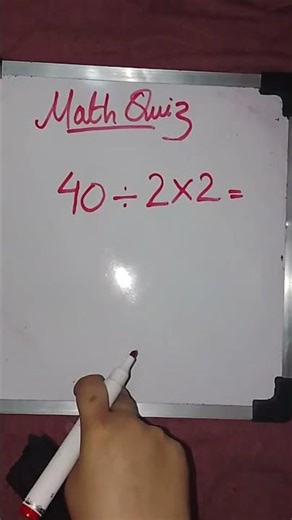 Math Quiz
40÷2×2=